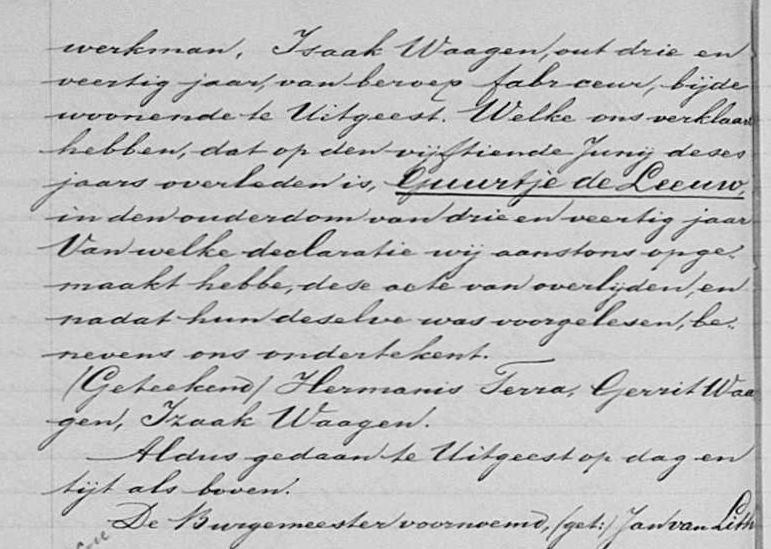 werkman, Isaak Waagen, out drie en
veertig jaar, van beroep fabrceur, bijde
woonende te Uitgeest. Welke ons verklaar
hebben, dat op den vijftiende Junij deses
jaars overleden is, Guurtje de Leeuw,
in den ouderdom van drie en veertig jaar
Van welke declaratie wij aanstons opge-
maakt hebbe, dese acte van overlijden, en
nadat hun deselve was voorgelesen, be-
nevens ons ondertekent.
(Geteekend) Hermanis Terra, Gerrit Waa
gen, Izaak Waagen.
Aldus gedaan te Uitgeest op dag en
tijt als boven.
De Burgemeester voornoemd, (get:) Jan van Lith